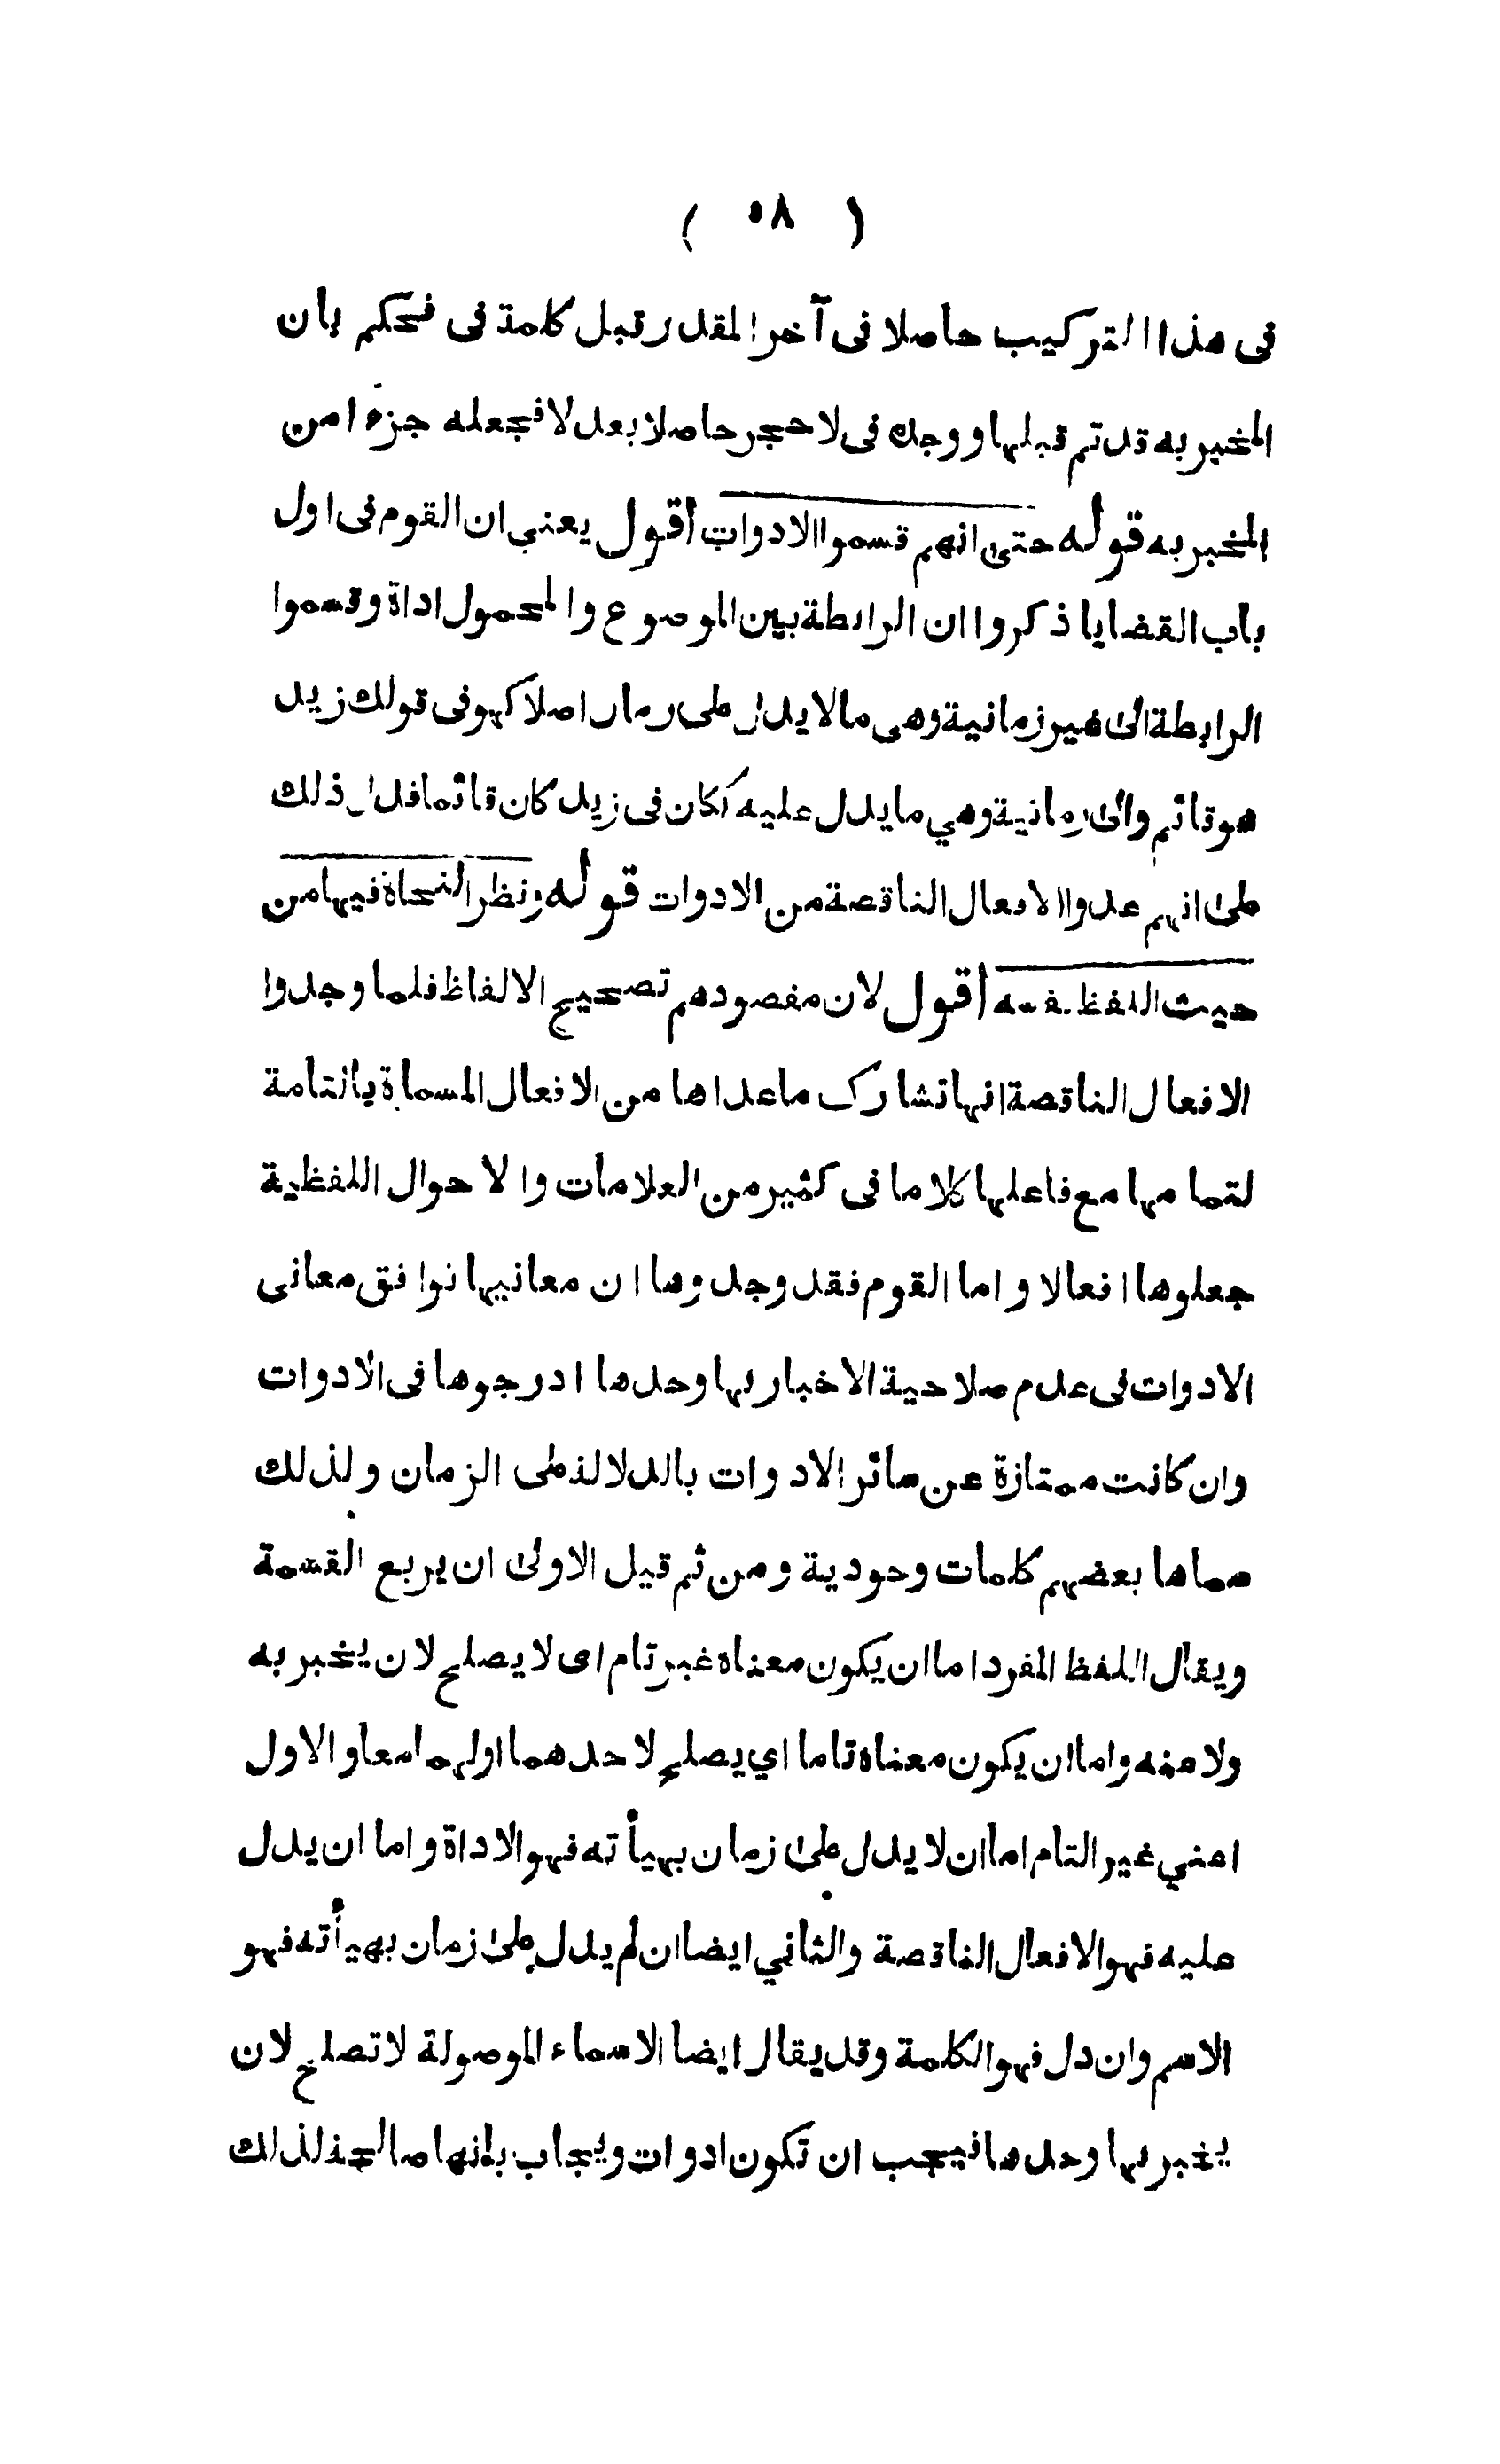 ( ٥٨ )
فى هذا التركيب حاصلا فى آخر المقدر قبل كلمة فى فحكم بان
المخبر به قد تم قبلها ووجده فى لا حجر حاصلا بعد لا فجعله جزءا من
المخبر به قوله حتى انهم قسموا الادوات أقول يعني ان القوم فى اول
باب القضايا ذكروا ان الرابطة بين الموضوع والمحمول اداة وقسموا
الرابطة الى غير زمانية وهى ما لا يدل على زمان اصلا كهو فى قولك زيد
هو قائم والى زمانية وهي ما يدل عليه ككان فى زيد كان قائما فدل ذلك
على انهم عدوا الافعال الناقصة من الادوات قوله ونظر النحاة فيها من
حيث اللفظ نفسه أقول لان مقصودهم تصحيح الالفاظ فلما وجدوا
الافعال الناقصة انها تشارك ما عداها من الافعال المسماة بالتامة
لتمامها مع فاعلها كلاما فى كثير من العلامات والاحوال اللفظية
جعلوها افعالا واما القوم فقد وجدوها ان معانيها توافق معانى
الادوات فى عدم صلاحية الاخبار بها وحدها ادرجوها فى الادوات
وان كانت ممتازة عن سائر الادوات بالدلالة على الزمان ولذلك
سماها بعضهم كلمات وجودية ومن ثم قيل الاولى ان يربع القسمة
ويقال اللفظ المفرد اما ان يكون معناه غير تام اى لا يصلح لان يخبر به
ولا منه واما ان يكون معناه تاما اي يصلح لاحدهما او لهما معا والاول
اعني غير التام اما ان لا يدل على زمان بهيأته فهو الاداة واما ان يدل
عليه فهو الافعال الناقصة والثاني ايضا ان لم يدل على زمان بهيأته فهو
الاسم وان دل فهو الكلمة وقد يقال ايضا الاسماء الموصولة لا تصلح لان
يخبر بها وحدها فيجب ان تكون ادوات ويجاب بانها صالحة لذلك